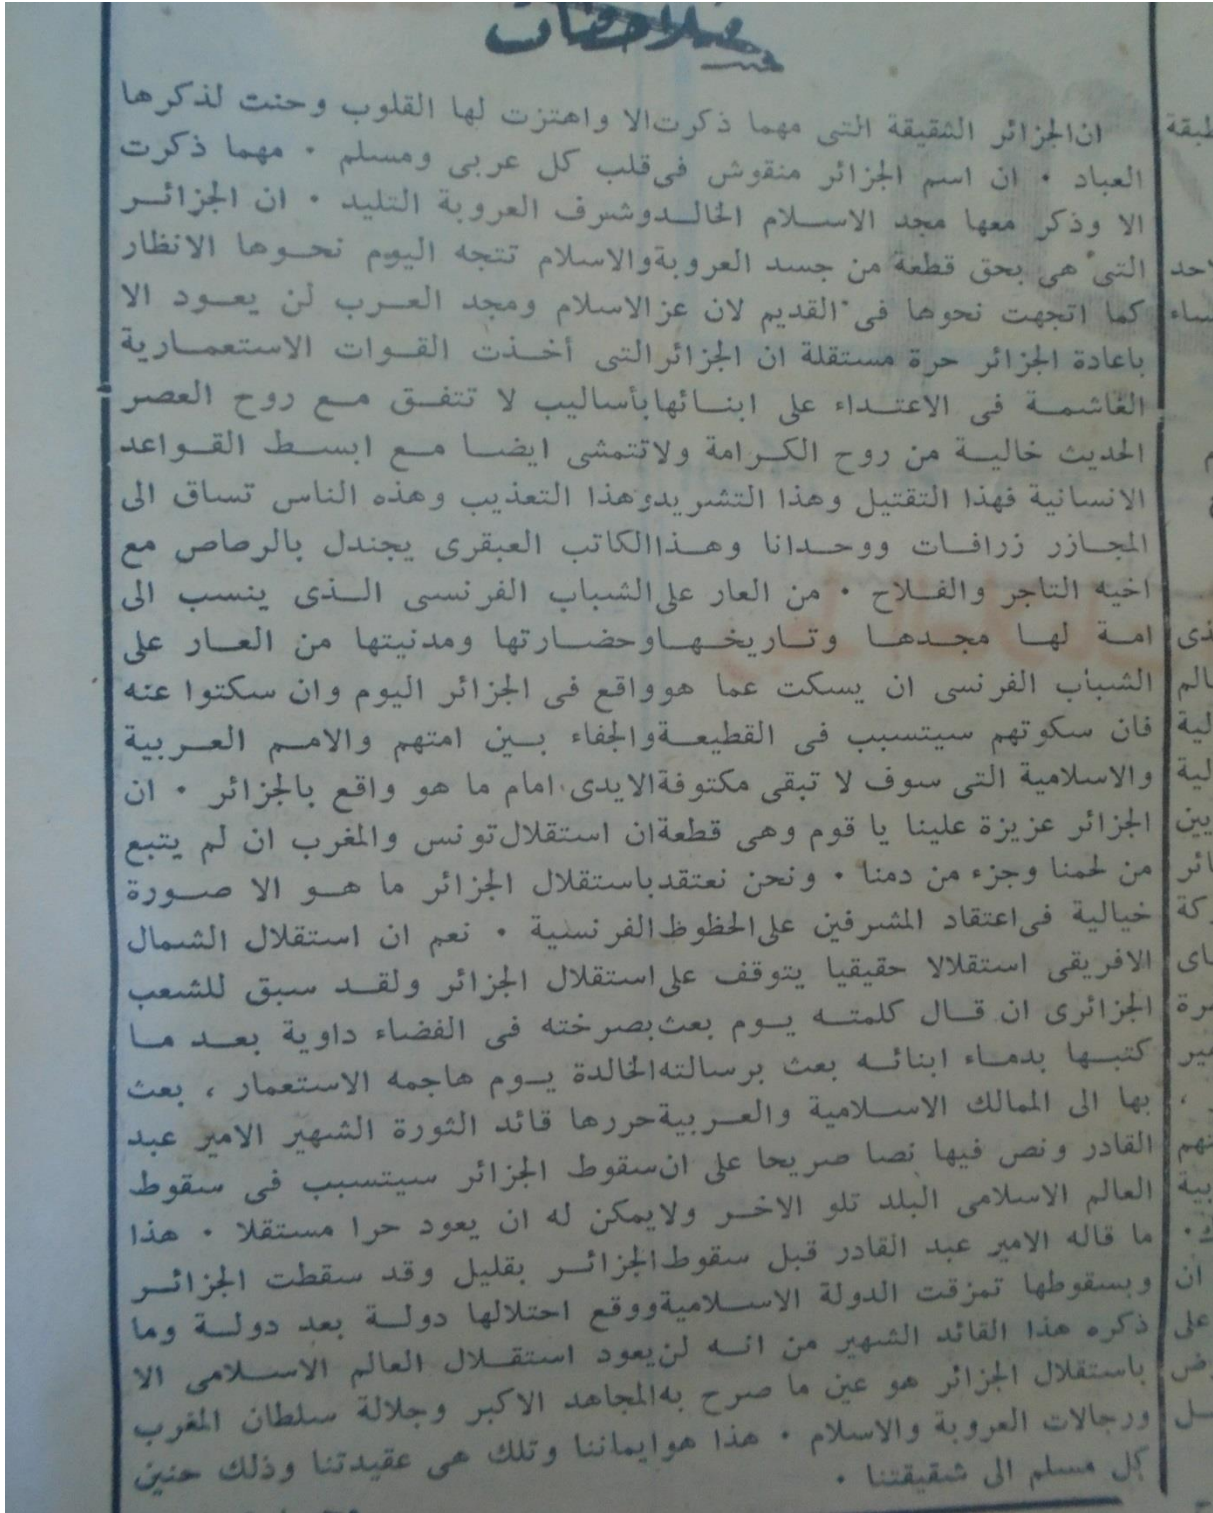 ملاحظات
ان الجزائر الشقيقة التى مهما ذكرت الا واهتزت لها القلوب وحنت لذكرها
العباد . ان اسم الجزائر منقوش فى قلب كل عربى ومسلم . مهما ذكرت
الا وذكر معها مجد الاسلام الخالد وشرف العروبة التليد . ان الجزائر
التى هى بحق قطعة من جسد العروبة والاسلام تتجه اليوم نحوها الانظار
كما اتجهت نحوها فى القديم لان عز الاسلام ومجد العرب لن يعود الا
باعادة الجزائر حرة مستقلة ان الجزائر التى أخذت القوات الاستعمارية
الغاشمة فى الاعتداء على ابنائها بأساليب لا تتفق مع روح العصر
الحديث خالية من روح الكرامة ولا تتمشى ايضا مع ابسط القواعد
الانسانية فهذا التقتيل وهذا التشريد وهذا التعذيب وهذه الناس تساق الى
المجازر زرافات ووحدانا وهذا الكاتب العبقرى يجندل بالرصاص مع
اخيه التاجر والفلاح . من العار على الشباب الفرنسى الذى ينسب الى
امة لها مجدها وتاريخها وحضارتها ومدنيتها من العار على
الشباب الفرنسى ان يسكت عما هو واقع فى الجزائر اليوم وان سكتوا عنه
فان سكوتهم سيتسبب فى القطيعة والجفاء بين امتهم والامم العربية
والاسلامية التى سوف لا تبقى مكتوفة الايدى امام ما هو واقع بالجزائر . ان
الجزائر عزيزة علينا يا قوم وهى قطعة ان استقلال تونس والمغرب ان لم يتبع
من لحمنا وجزء من دمنا . ونحن نعتقد باستقلال الجزائر ما هو الا صورة
خيالية فى اعتقاد المشرفين على الحظوظ الفرنسية . نعم ان استقلال الشمال
الافريقى استقلالا حقيقيا يتوقف على استقلال الجزائر ولقد سبق للشعب
الجزائرى ان قال كلمته يوم بعث بصرخته فى الفضاء داوية بعد ما
كتبها بدماء ابنائه بعث برسالته الخالدة يوم هاجمه الاستعمار ، بعث
بها الى الممالك الاسلامية والعربية حررها قائد الثورة الشهير الامير عبد
القادر ونص فيها نصا صريحا على ان سقوط الجزائر سيتسبب فى سقوط
العالم الاسلامى البلد تلو الاخر ولا يمكن له ان يعود حرا مستقلا . هذا
ما قاله الامير عبد القادر قبل سقوط الجزائر بقليل وقد سقطت الجزائر
وبسقوطها تمزقت الدولة الاسلامية ووقع احتلالها دولة بعد دولة وما
ذكره هذا القائد الشهير من انه لن يعود استقلال العالم الاسلامى الا
باستقلال الجزائر هو عين ما صرح به المجاهد الاكبر وجلالة سلطان المغرب
ورجالات العروبة والاسلام . هذا هو ايماننا وتلك هى عقيدتنا وذلك حنين
كل مسلم الى شقيقتنا .